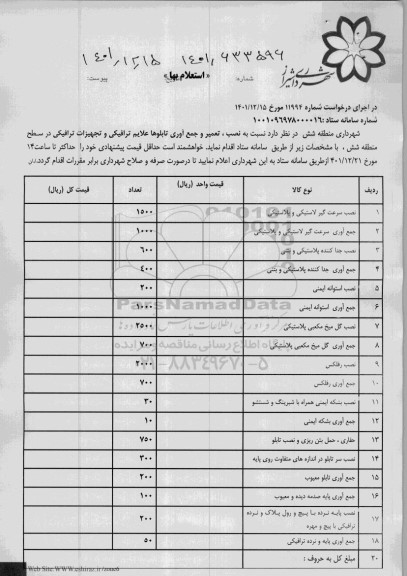 شهرداری شیراز
۱۴۰۱/۱۲/۱۵ ۱۴۰۱/۶۳۳۵۹۶
« استعلام بها » شماره: پیوست:
در اجرای درخواست شماره ۱۱۹۹۴ مورخ ۱۴۰۱/۱۲/۱۵
شماره سامانه ستاد :۱۰۰۱۰۹۶۹۷۸۰۰۰۰۱۶
شهرداری منطقه شش در نظر دارد نسبت به نصب ، تعمیر و جمع آوری تابلوها علایم ترافیکی و تجهیزات ترافیکی در سطح
منطقه شش ، با مشخصات زیر از طریق سامانه ستاد اقدام نماید. خواهشمند است حداقل قیمت پیشنهادی خود را حداکثر تا ساعت۱۴
مورخ ۱۴۰۱/۱۲/۲۱ ازطریق سامانه ستاد به این شهرداری اعلام نمایید تا درصورت صرفه و صلاح شهرداری برابر مقررات اقدام گردد.
ردیف نوع کالا قیمت واحد (ریال) تعداد قیمت کل (ریال)
۱ نصب سرعت گیر لاستیکی و پلاستیکی ۱۵۰۰
۲ جمع آوری سرعت گیر لاستیکی و پلاستیکی ۱۰۰۰
۳ نصب جدا کننده پلاستیکی و بتنی ۶۰۰
۴ جمع آوری جدا کننده پلاستیکی و بتنی ۴۰۰
۵ نصب استوانه ایمنی ۲۰۰
۶ جمع آوری استوانه ایمنی ۱۰۰۰
۷ نصب گل میخ مکعبی پلاستیکی ۲۵۰۰
۸ جمع آوری گل میخ مکعبی پلاستیکی ۷۰۰
۹ نصب رفلکس ۲۰۰۰
۱۰ جمع آوری رفلکس ۷۰۰
۱۱ نصب بشکه ایمنی همراه با شبرینگ و شستشو ۳۰
۱۲ جمع آوری بشکه ایمنی ۱۰
۱۳ حفاری ، حمل بتن ریزی و نصب تابلو ۷۵۰
۱۴ نصب سر تابلو در اندازه های متفاوت روی پایه ۳۰۰
۱۵ جمع آوری تابلو معیوب ۲۰۰
۱۶ جمع آوری پایه صدمه دیده و معیوب ۱۰۰
۱۷ نصب پایه نرده با پیچ و رول پلاک و نرده
ترافیکی با پیچ و مهره ۲۰۰
۱۸ جمع آوری پایه و نرده ترافیکی ۵۰
۲۰ مبلغ کل به حروف :
ParsNamadData
۰۲۱-۸۸۳۴۹۶۷۰-۵